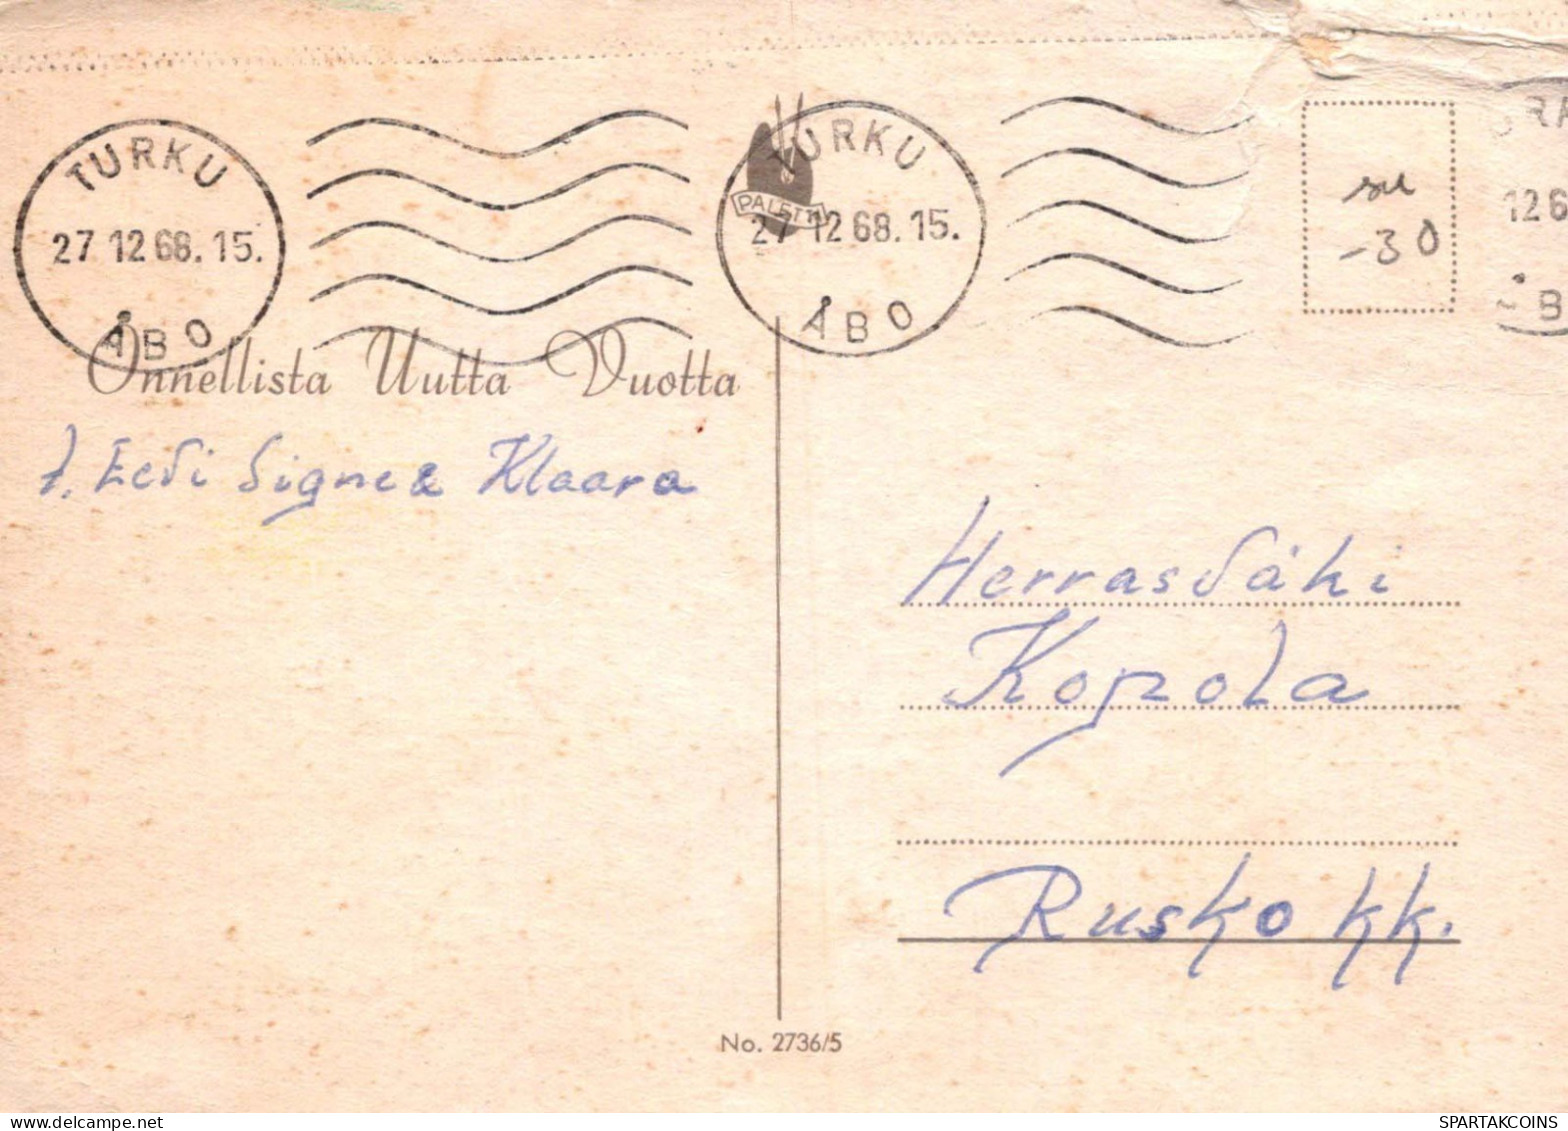 TURKU
27 12 68. 15.
ÅBO
PALETTI
TURKU
27 12 68. 15.
ÅBO
su
-30
RA
12 6
ÅB
Onnellista Uutta Vuotta
t. Eedi Signe & Klaara
Herrasväki
Kopola
Rusko kk.
No. 2736/5
SPARTAKCOINS